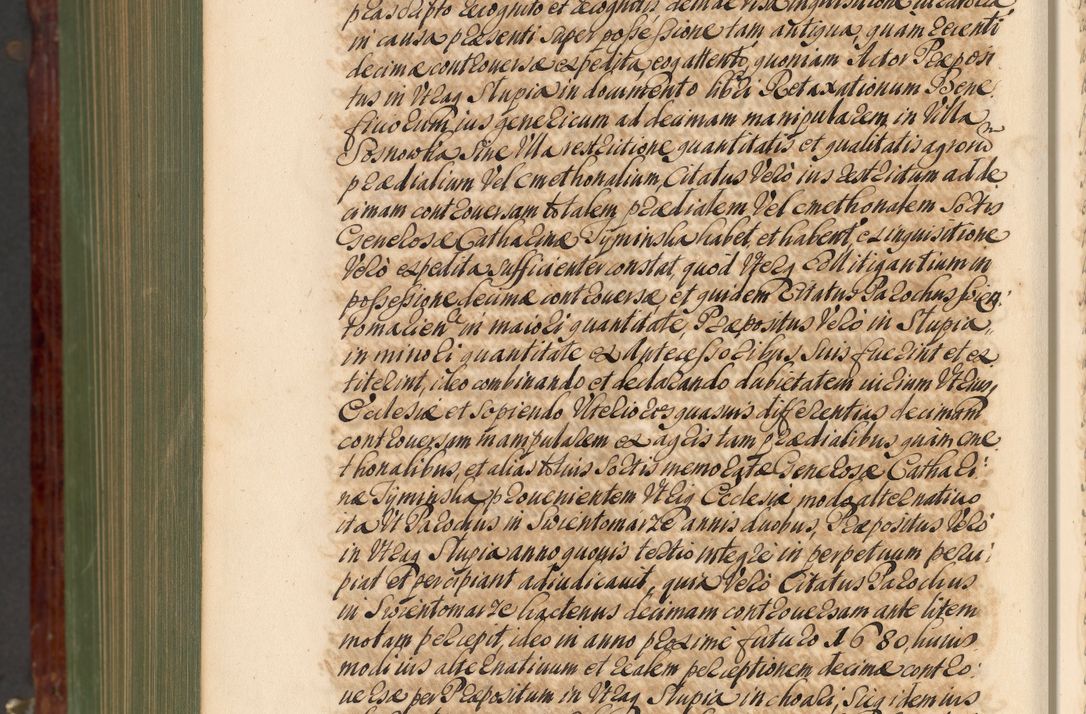 præscripto recognito et recognitis de mandato inquisitione
in causa præsenti super possessione tam antiqua quam recenti
decimæ controversæ expedita, eo attento, quoniam Actor Præposi
tus in Utraq Slupia in documento libri Retaxationum Bene
ficiorum ius genericum ad decimam manipularem in Villa
Posnowka sine Ulla restritione quantitatis et qualitatis agrorũ
prædialium Vel cmethonalium, Citatus Verò ius restrictum ad de
cimam controversam totalem, prædialem Vel cmethonalem Sortis
Generosæ Catharinæ Tyminska habet, et habent, ex inquisitione
Verò expedita sufficienter constat quod Uterq Collitigantium in
possessione decimæ controversæ et quidem Citatus Parochus Swien
tomarien in maiori quantitate, Præpositus Verò in Slupia,
in minori quantitate ex Antecessoribus suis fuerint et ex
titerint, ideo combinando et declarando dubietatem iurium Utriusq
Ecclesiæ et sopiendo Ulteriores quasuis differentias decimam
controversam manipularem ex agris tam prædialibus quam cme
thonalibus, et alias totius Sortis memoratæ Generosæ Cathari:
næ Tyminska provenientem Utriq Ecclesiæ modo alternativo
ita Ut Parochus in Swientomarze annis duobus, Præpositus Verò
in Utraq Slupia anno quouis tertio integre in perpetuum perci:
piat et percipiant adiudicauit, quia Verò Citatus Parochus
in Swientomarze hactenus decimam controuersam ante litem
motam percepit, ideo in anno proxime futuro 1680, huius
modi ius alternatiuum et realem perceptionem decimæ contro:
uersæ per Præpositum in Utraq Slupia inchoari, Siquidem ius